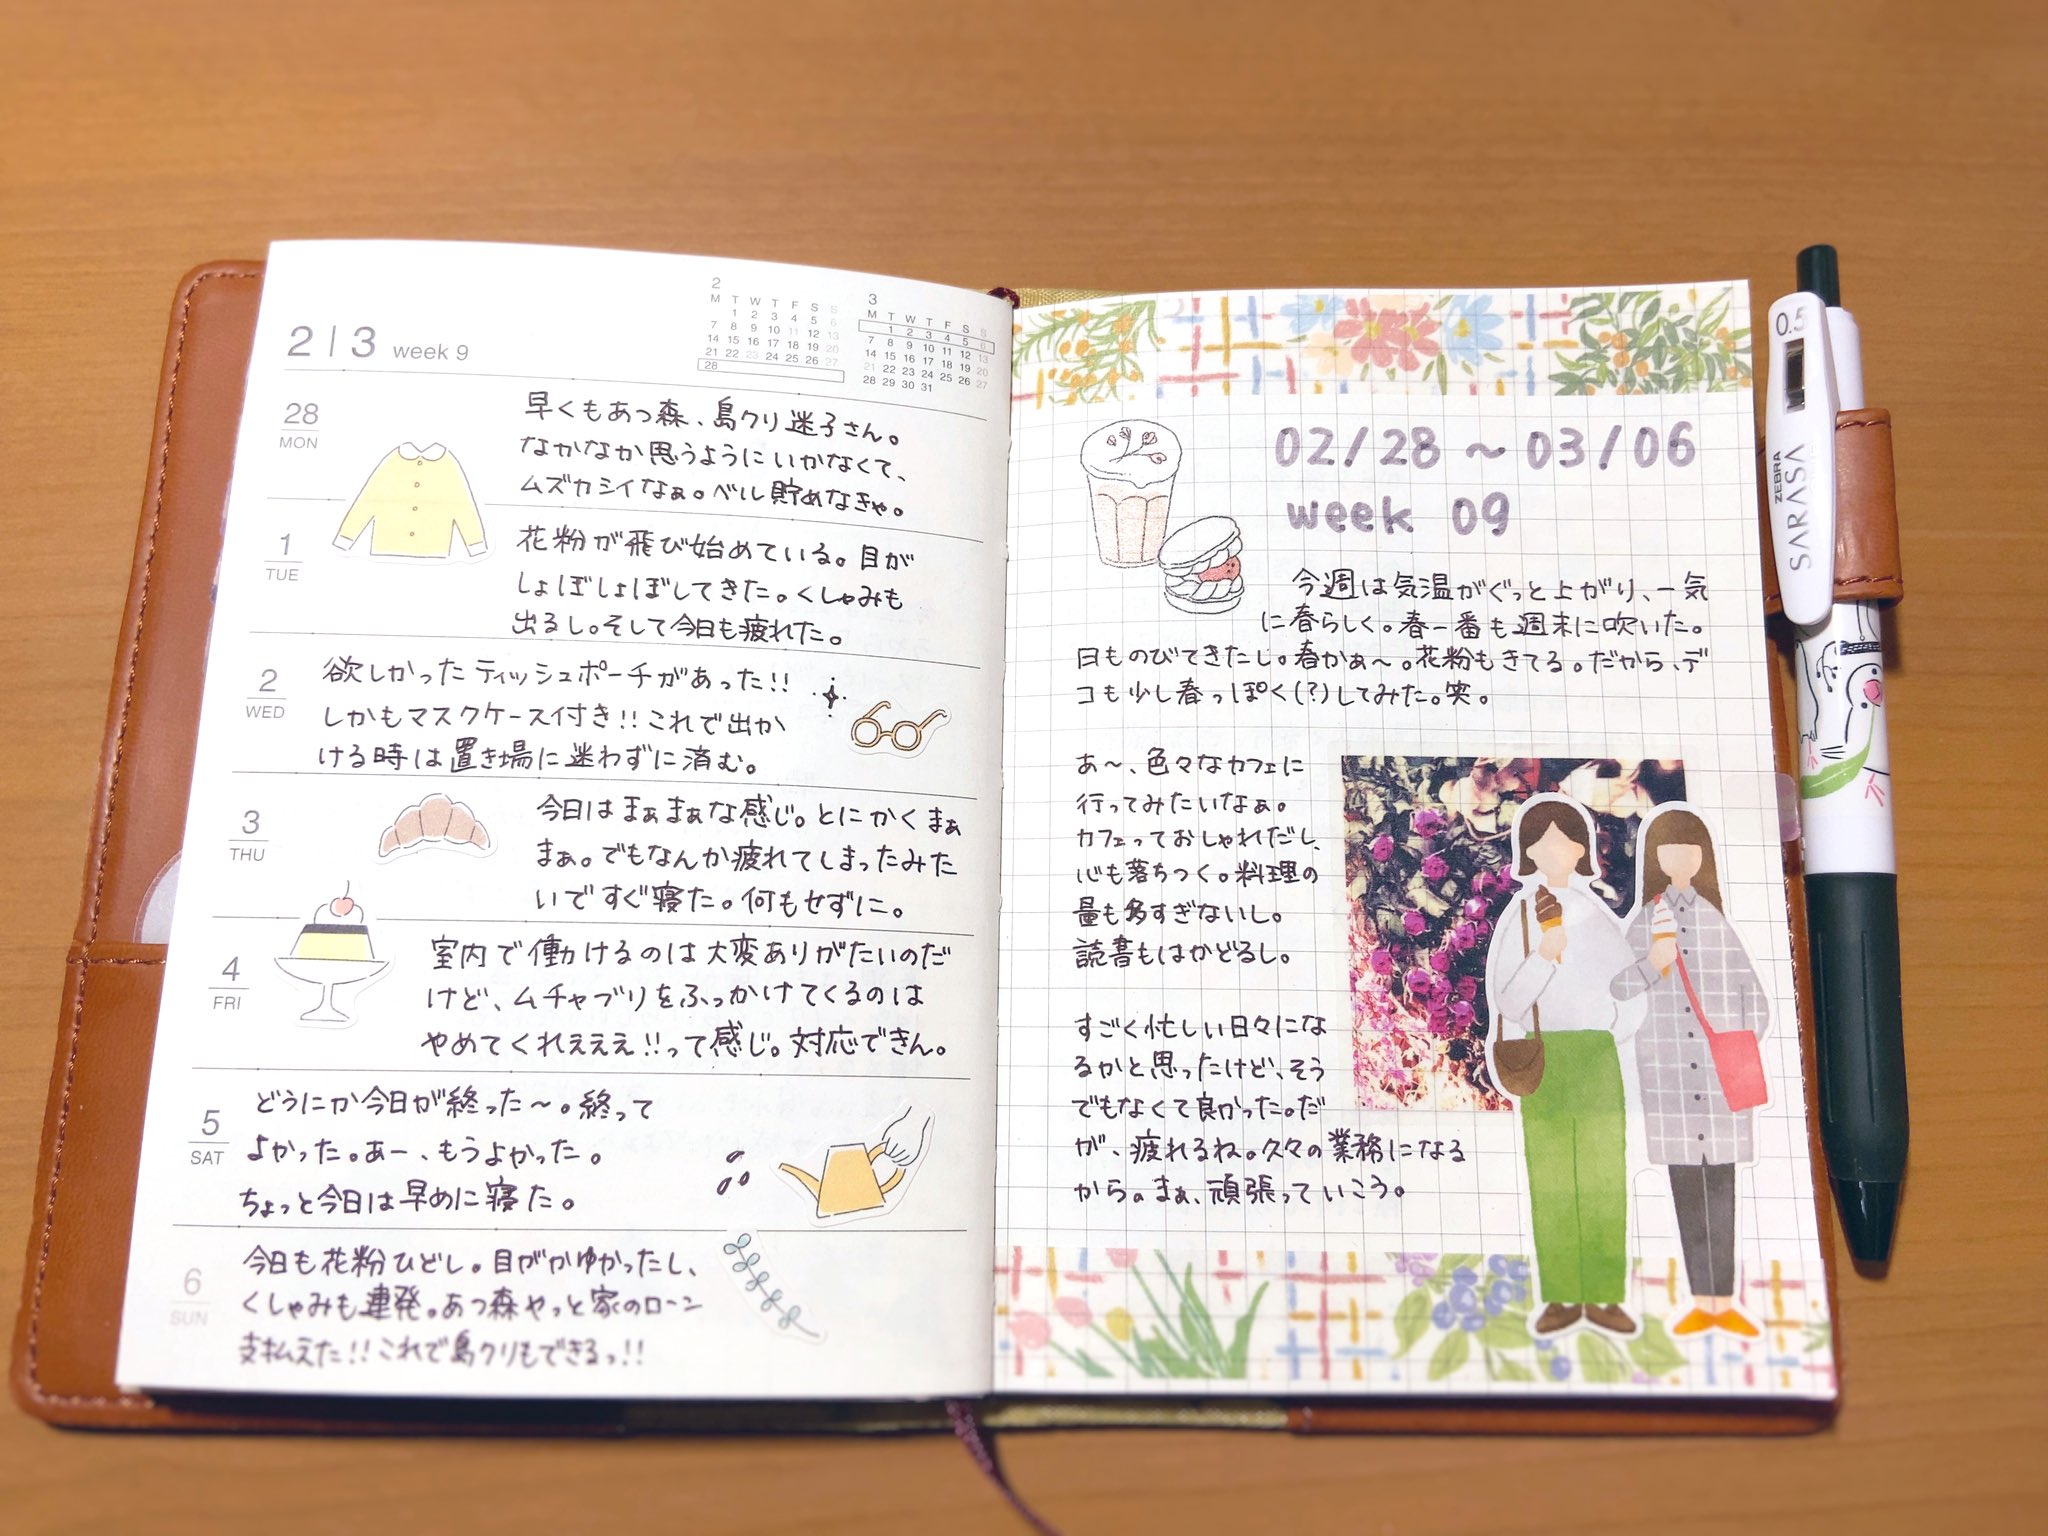 2 | 3 week 9
2
M T W T F S S
1 2 3 4 5 6
7 8 9 10 11 12 13
14 15 16 17 18 19 20
21 22 23 24 25 26 27
28
3
M T W T F S S
1 2 3 4 5 6
7 8 9 10 11 12 13
14 15 16 17 18 19 20
21 22 23 24 25 26 27
28 29 30 31
28
MON
早くもあつ森、島クリ迷子さん。
なかなか思うようにいかなくて、
ムズカシイなぁ。ベル貯めなきゃ。
1
TUE
花粉が飛び始めている。目が
しょぼしょぼしてきた。くしゃみも
出るし。そして今日も疲れた。
2
WED
欲しかったティッシュポーチがあった!!
しかもマスクケース付き!!これで出か
ける時は置き場に迷わずに済む。
3
THU
今日はまぁまぁな感じ。とにかくまぁ
まぁ。でもなんか疲れてしまったみた
いですぐ寝た。何もせずに。
4
FRI
室内で働けるのは大変ありがたいのだ
けど、ムチャブリをふっかけてくるのは
やめてくれぇぇぇ!!って感じ。対応できん。
5
SAT
どうにか今日が終った〜。終って
よかった。あー、もうよかった。
ちょっと今日は早めに寝た。
6
SUN
今日も花粉ひどし。目がかゆかったし、
くしゃみも連発。あつ森やっと家のローン
支払えた!!これで島クリもできるっ!!
02/28 〜 03/06
week 09
今週は気温がぐっと上がり、一気
に春らしく。春一番も週末に吹いた。
日ものびてきたし。春かぁ〜。花粉もきてる。だから、デ
コも少し春っぽく(?)してみた。笑。
あ〜、色々なカフェに
行ってみたいなぁ。
カフェっておしゃれだし、
心も落ちつく。料理の
量も多すぎないし。
読書もはかどるし。
すごく忙しい日々にな
るかと思ったけど、そう
でもなくて良かった。だ
が、疲れるね。久々の業務になる
から。まぁ、頑張っていこう。
0.5
ZEBRA
SARASA